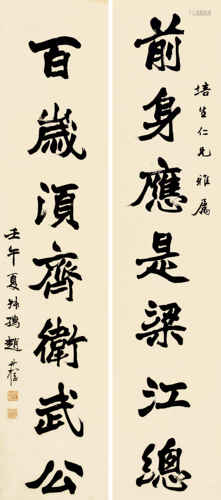 前身應是梁江總
培生仁兄雅属
百歲須齊衛武公
壬午夏叔孺趙